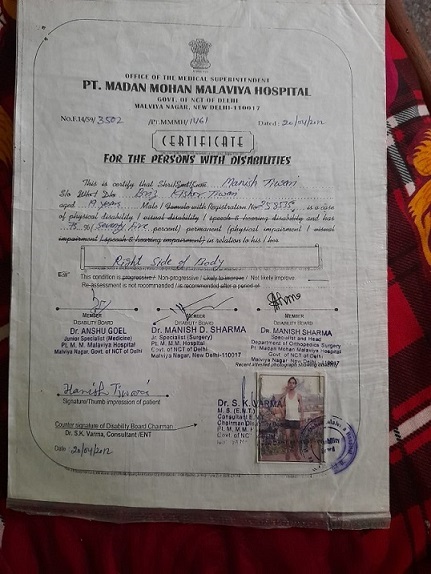 OFFICE OF THE MEDICAL SUPERINTENDENT
PT. MADAN MOHAN MALAVIYA HOSPITAL
GOVT. OF NCT OF DELHI
MALVIYA NAGAR, NEW DELHI-110017
No.F.14/59/ 3502 /PT.MMMH/ 1461 Dated : 20/04/2012
CERTIFICATE
FOR THE PERSONS WITH DISABILITIES
This is certify that Shri/Smt/Kum Manish Tiwari
S/o W/o D/o Brij Kishor Tiwari
aged 19 years Male / Female with Registration No. 258535 is a case
of physical disability / visual disability / speech & hearing disability and has
75 % ( Seventy Five percent) permanent (physical impairment / visual
impairment / speech & hearing impairment) in relation to his / her
Right Side of Body
This condition is progressive / Non-progressive / Likely to improve / Not likely improve
Re-assessment is not recommended / is recommended after a period of
MEMBER MEMBER MEMBER
DISABILITY BOARD DISABILITY BOARD DISABILITY BOARD
Dr. ANSHU GOEL Dr. MANISH D. SHARMA Dr. MANISH SHARMA
Junior Specialist (Medicine) Jr. Specialist (Surgery) Specialist and Head
Pt. M. M. Malaviya Hospital Pt. M.M.M. Hospital Department of Orthopaedics Surgery
Malviya Nagar, Govt. of NCT of Delhi Govt. of NCT of Delhi Pt. Madan Mohan Malaviya Hospital
Malviya Nagar, New Delhi-110017 Govt. of NCT of Delhi
Malviya Nagar, New Delhi-110017
Recent attested photograph showing
Manish Tiwari
Signature/Thumb impression of patient
Dr. S.K. VARMA
M.S. (E.N.T)
Chairman
Govt. of NC
Counter signature of Disability Board Chairman
Dr. S.K. Varma, Consultant /ENT
Date : 20/04/2012